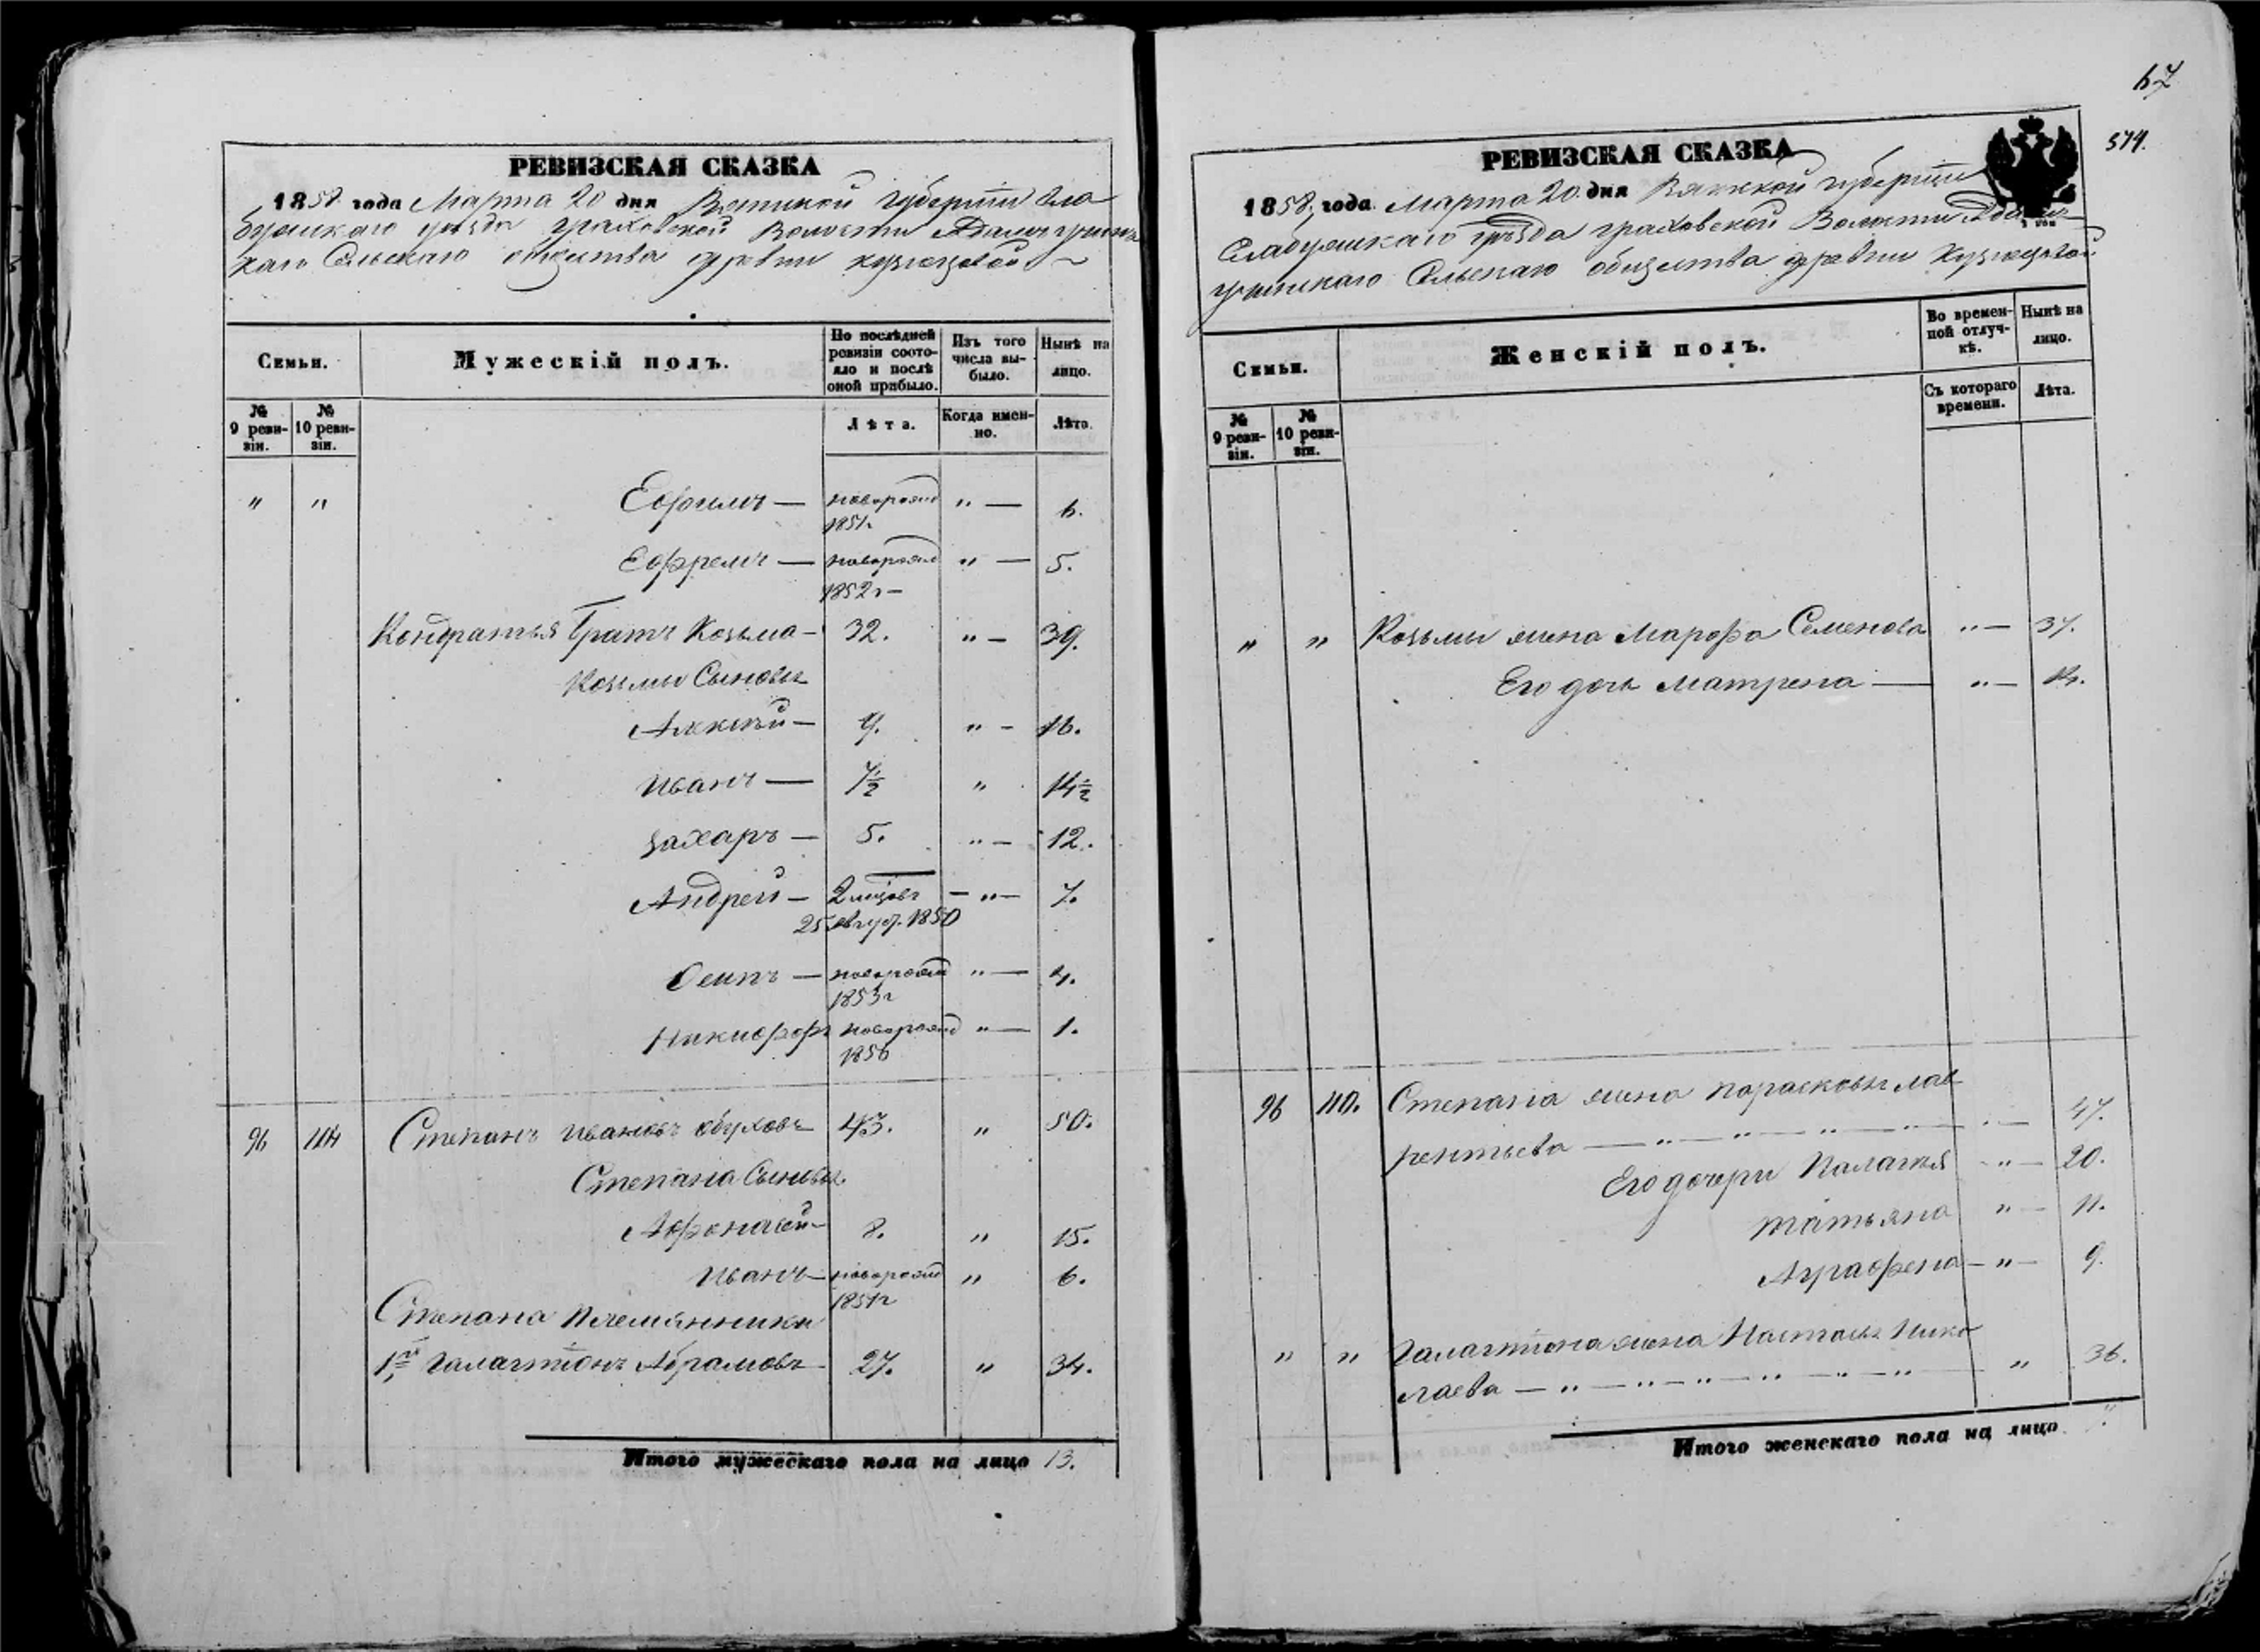 РЕВИЗСКАЯ СКАЗКА
1858 года Марта 20 дня Вятской Губернии Ела
бужскаго уѣзда Граховской Волости
каго Сельскаго общества деревни Кузнецовой
Семьи.
Мужескій полъ.
По послѣдней ревизіи состояло и послѣ оной прибыло.
Изъ того числа выбыло.
Нынѣ на лицо.
№ 9 ревизіи.
№ 10 ревизіи.
Лѣта.
Когда именно.
Лѣта.
" " Ефимъ — новорожд " — 6.
1851г
Ефремъ — новорожд " — 5.
1852г —
Кондратья Братъ Козьма — 32. " — 39.
Козьмы Сыновья
Алексѣй — 9. " — 16.
Иванъ — 7½ " 14½
Захаръ — 5. " — 12.
Андрей — 2 мѣсов — " — 7.
25 1850
Осипъ — новорожд " — 4.
1853г
Никифоръ новорожд " — 1.
1856
96 Степанъ Ивановъ Обуховъ 43. " 50.
Степана Сыновья
Афонасей — 8. " 15.
Иванъ — новорожд " 6.
1851г
Степана Племянники
1й Галактіонъ Абрамовъ 27. " 34.
Итого мужескаго пола на лицо 13.
67
574.
РЕВИЗСКАЯ СКАЗКА
1858 года Марта 20 дня Вятской Губерніи
Елабужскаго уѣзда Граховской Волости
Сельскаго общества деревни Кузнецовой
Семьи.
Женскій полъ.
Во временной отлучкѣ.
Нынѣ на лицо.
№ 9 ревизіи.
№ 10 ревизіи.
Съ котораго времени.
Лѣта.
" " Козьмы жена Марфа Семенова " — 37.
Его дочь Матрена — " — 14.
96 110. Степана жена Парасковья Лав
рентьева — " — " — " — " — 47.
Его дочери Палагея — " — 20.
Татьяна " — 11.
Аграфена — " — 9.
" " Галактіона жена Настасья Нико
лаева — " — " — " — " — " — " " 36.
Итого женскаго пола на лицо